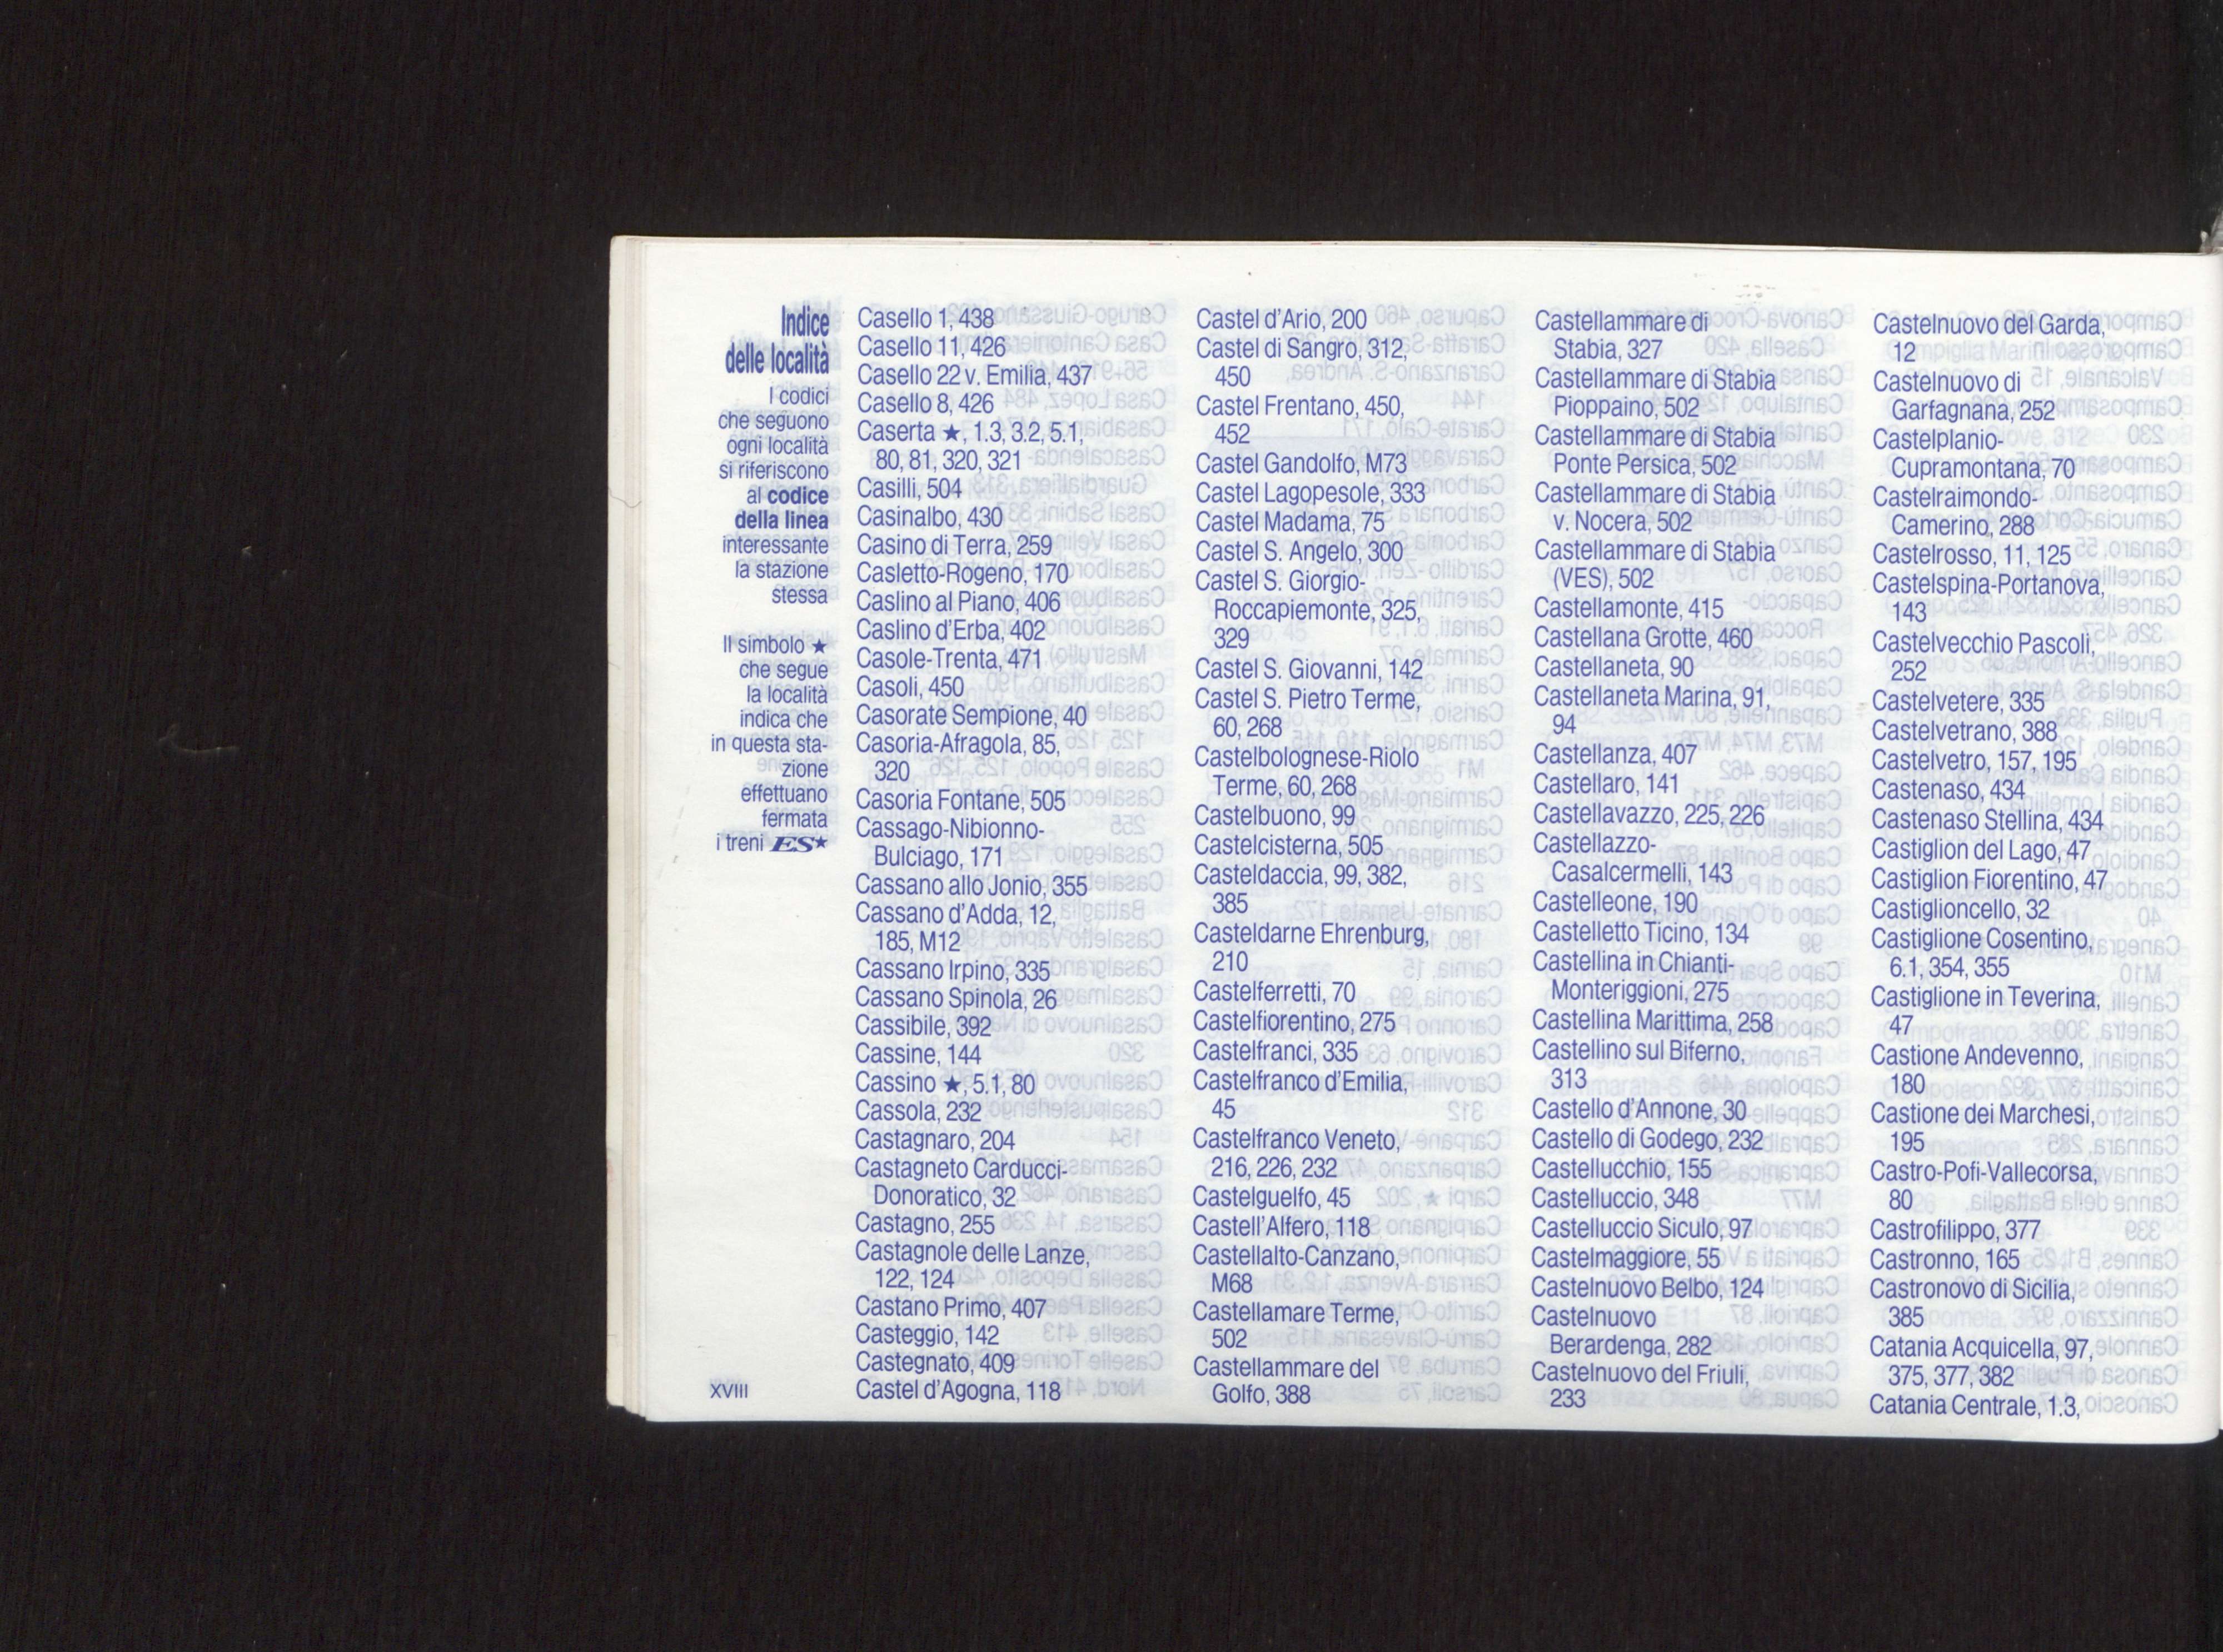 Indice
delle località
I codici
che seguono
ogni località
si riferiscono
al codice
della linea
interessante
la stazione
stessa
Il simbolo ★
che segue
la località
indica che
in questa sta-
zione
effettuano
fermata
i treni ES★
XVIII
Casello 1, 438
Casello 11, 426
Casello 22 v. Emilia, 437
Casello 8, 426
Caserta ★, 1.3, 3.2, 5.1,
80, 81, 320, 321
Casilli, 504
Casinalbo, 430
Casino di Terra, 259
Casletto-Rogeno, 170
Caslino al Piano, 406
Caslino d'Erba, 402
Casole-Trenta, 471
Casoli, 450
Casorate Sempione, 40
Casoria-Afragola, 85,
320
Casoria Fontane, 505
Cassago-Nibionno-
Bulciago, 171
Cassano allo Jonio, 355
Cassano d'Adda, 12,
185, M12
Cassano Irpino, 335
Cassano Spinola, 26
Cassibile, 392
Cassine, 144
Cassino ★, 5.1, 80
Cassola, 232
Castagnaro, 204
Castagneto Carducci-
Donoratico, 32
Castagno, 255
Castagnole delle Lanze,
122, 124
Castano Primo, 407
Casteggio, 142
Castegnato, 409
Castel d'Agogna, 118
Castel d'Ario, 200
Castel di Sangro, 312,
450
Castel Frentano, 450,
452
Castel Gandolfo, M73
Castel Lagopesole, 333
Castel Madama, 75
Castel S. Angelo, 300
Castel S. Giorgio-
Roccapiemonte, 325,
329
Castel S. Giovanni, 142
Castel S. Pietro Terme,
60, 268
Castelbolognese-Riolo
Terme, 60, 268
Castelbuono, 99
Castelcisterna, 505
Casteldaccia, 99, 382,
385
Casteldarne Ehrenburg,
210
Castelferretti, 70
Castelfiorentino, 275
Castelfranci, 335
Castelfranco d'Emilia,
45
Castelfranco Veneto,
216, 226, 232
Castelguelfo, 45
Castell'Alfero, 118
Castellalto-Canzano,
M68
Castellamare Terme,
502
Castellammare del
Golfo, 388
Castellammare di
Stabia, 327
Castellammare di Stabia
Pioppaino, 502
Castellammare di Stabia
Ponte Persica, 502
Castellammare di Stabia
v. Nocera, 502
Castellammare di Stabia
(VES), 502
Castellamonte, 415
Castellana Grotte, 460
Castellaneta, 90
Castellaneta Marina, 91,
94
Castellanza, 407
Castellaro, 141
Castellavazzo, 225, 226
Castellazzo-
Casalcermelli, 143
Castelleone, 190
Castelletto Ticino, 134
Castellina in Chianti-
Monteriggioni, 275
Castellina Marittima, 258
Castellino sul Biferno,
313
Castello d'Annone, 30
Castello di Godego, 232
Castellucchio, 155
Castelluccio, 348
Castelluccio Siculo, 97
Castelmaggiore, 55
Castelnuovo Belbo, 124
Castelnuovo
Berardenga, 282
Castelnuovo del Friuli,
233
Castelnuovo del Garda,
12
Castelnuovo di
Garfagnana, 252
Castelplanio-
Cupramontana, 70
Castelraimondo-
Camerino, 288
Castelrosso, 11, 125
Castelspina-Portanova,
143
Castelvecchio Pascoli,
252
Castelvetere, 335
Castelvetrano, 388
Castelvetro, 157, 195
Castenaso, 434
Castenaso Stellina, 434
Castiglion del Lago, 47
Castiglion Fiorentino, 47
Castiglioncello, 32
Castiglione Cosentino,
6.1, 354, 355
Castiglione in Teverina,
47
Castione Andevenno,
180
Castione dei Marchesi,
195
Castro-Pofi-Vallecorsa,
80
Castrofilippo, 377
Castronno, 165
Castronovo di Sicilia,
385
Catania Acquicella, 97,
375, 377, 382
Catania Centrale, 1.3,